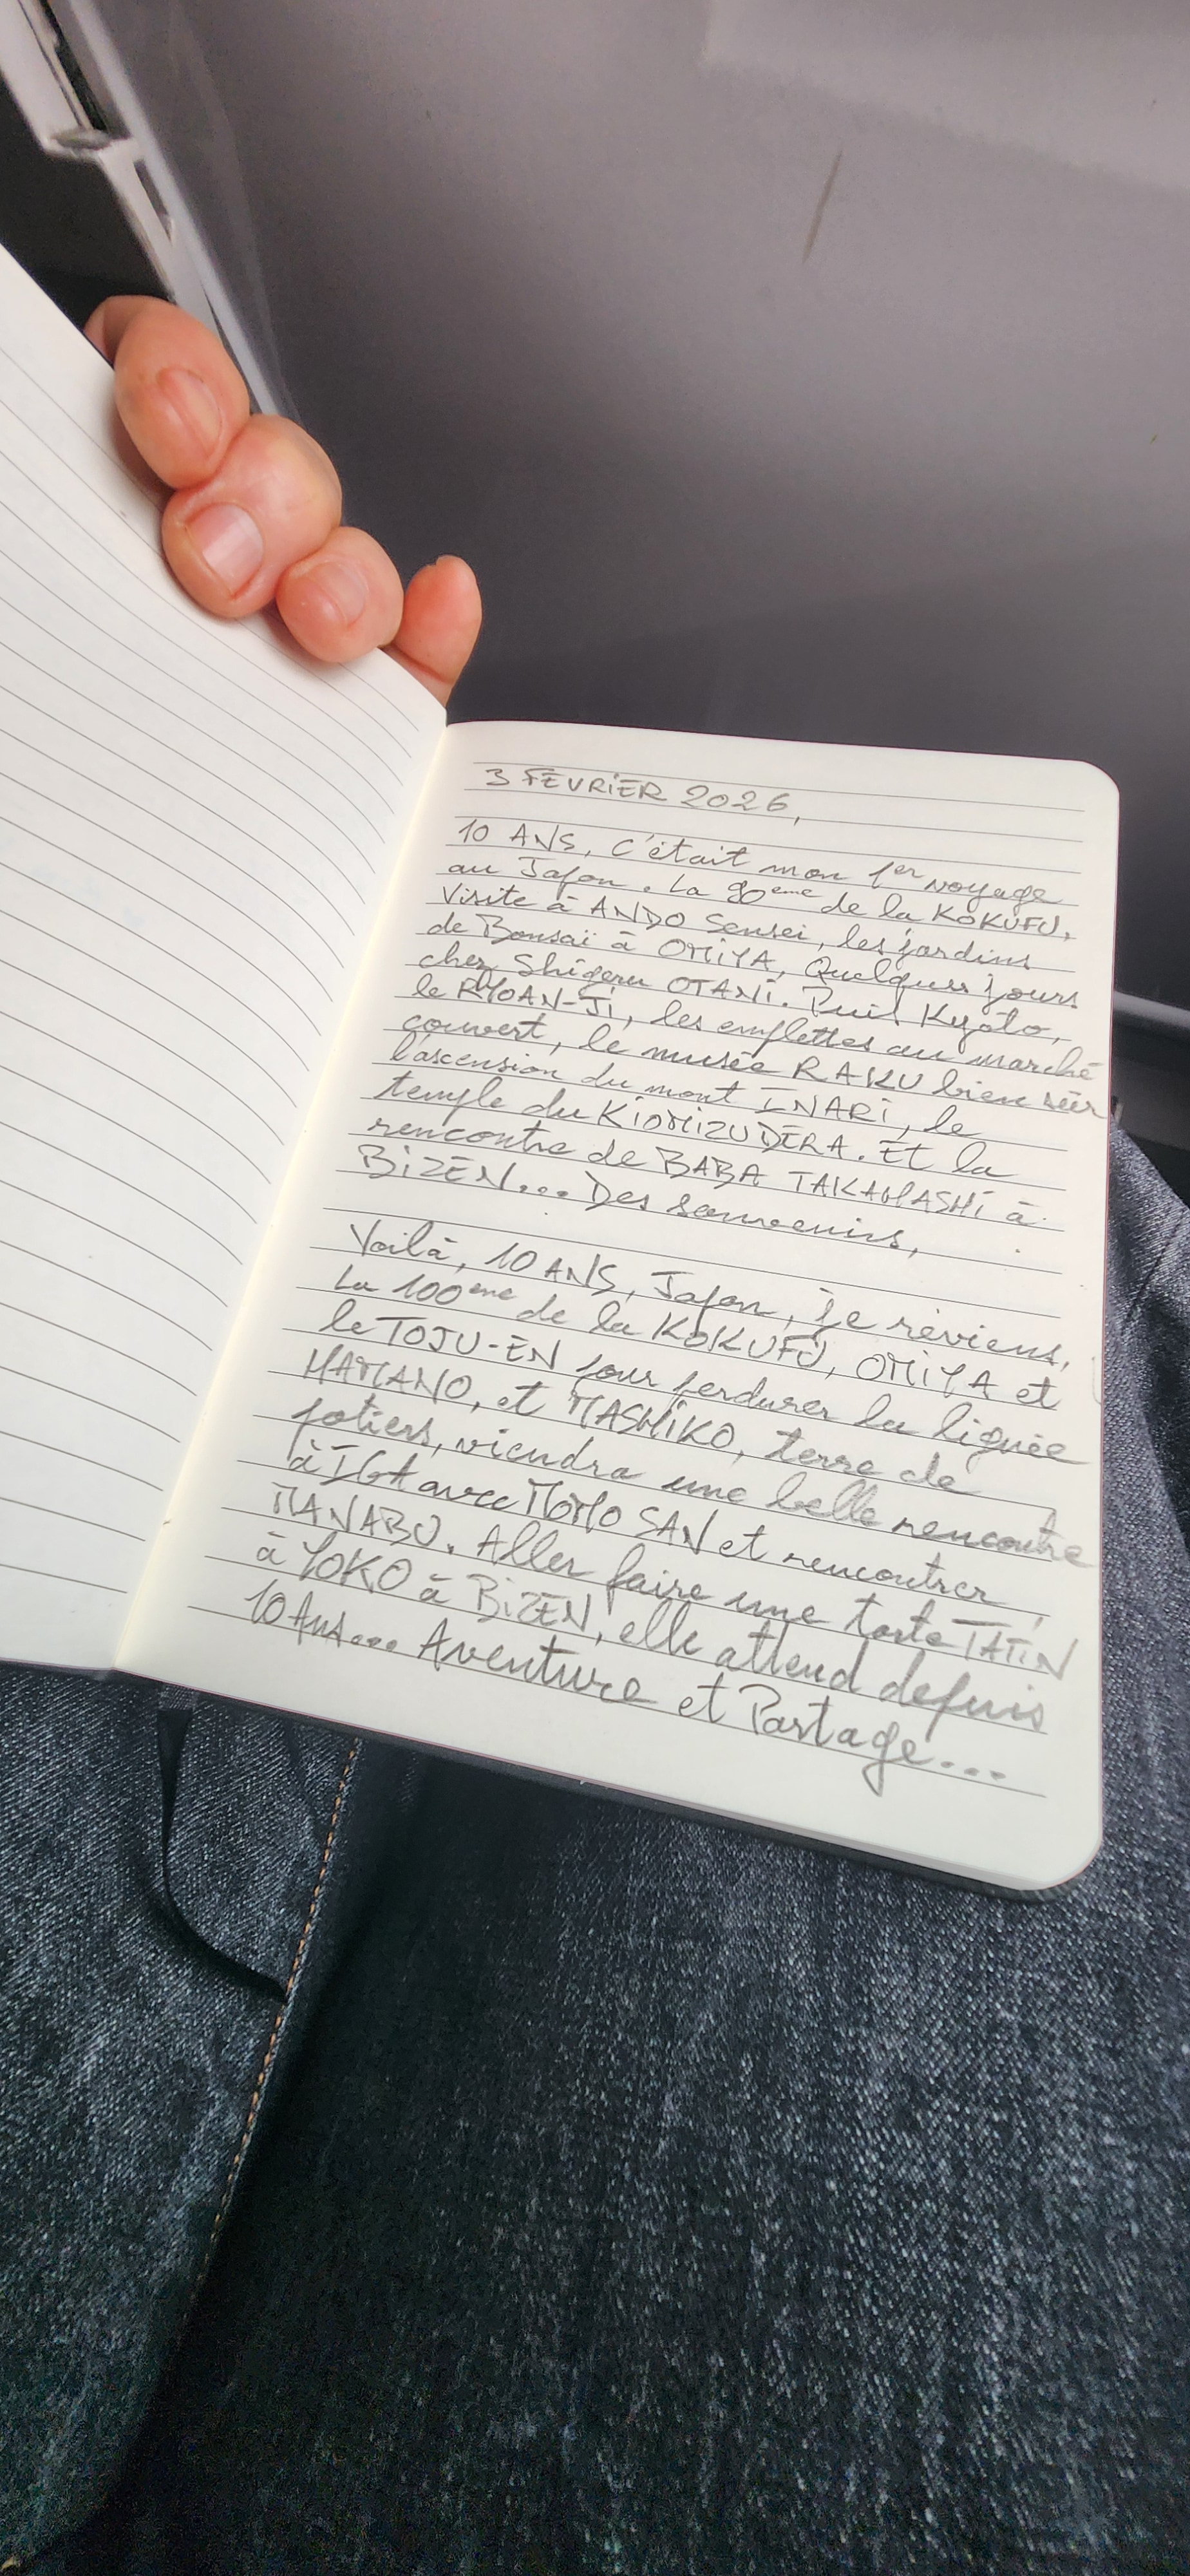 3 FÉVRIER 2026,
10 ANS, C'était mon 1er voyage
au Japon. La 90eme de la KOKUFU,
Visite à ANDO Sensei, les jardins
de Bonsaï à OMIYA, Quelques jours
chez Shigeru OTANI. Puis Kyoto,
le RYOAN-Ji, les emplettes au marché
couvert, le musée RAKU bien sûr
l'ascension du mont INARI, le
temple du KIOMIZUDERA. Et la
rencontre de BABA TAKAHASHI à
BIZEN... Des souvenirs,
Voilà, 10 ANS, Japon, je reviens,
La 100eme de la KOKUFU, OMIYA et
le TOJU-EN pour perdurer la lignée
HAMANO, et MASHIKO, terre de
potiers, viendra une belle rencontre
à IGA avec MOMO SAN et rencontrer
MANABU. Aller faire une tarte TATIN
à YOKO à BIZEN, elle attend depuis
10 Ans... Aventure et Partage...